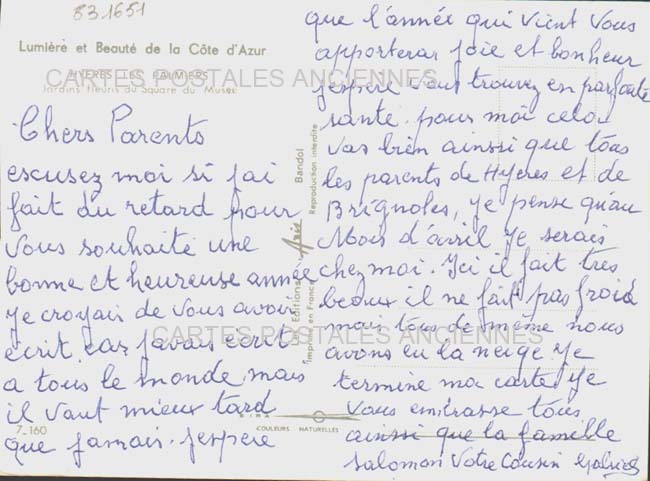 83.1651
Lumière et Beauté de la Côte d'Azur
HYÈRES LES PALMIERS
Jardins fleuris du Square du Musée
CARTES POSTALES ANCIENNES
Chers Parents
escusez moi si j'ai
fait du retard pour
vous souhaité une
bonne et heureuse année
je croyais de vous avoir
ecrit car j'avais ecrit
a tous le monde mais
il vaut mieux tard
que jamais. j'espere
7-160
COULEURS NATURELLES
Les Editions
Imprimé en France
Bandol
Reproduction interdite
que l'année qui vient vous
apporterar joie et bonheur
j'espere vous trouvez en parfaite
santé. pour moi celou
vas bien ainsi que tous
les parents de Hyeres et de
Brignoles, je pense qu'au
Mois d'avril je serais
chez moi. Ici il fait tres
beaux il ne fait pas froid
mais tous de même nous
CARTES POSTALES ANCIENNES
avons eu la neige. je
termine ma carte. je
vous embrasse tous
ainsi que la famille
Salomon Votre Cousin